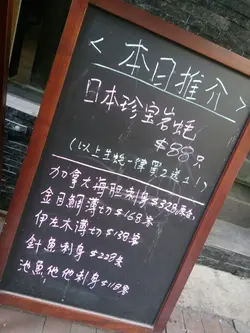 <本日推介>
日本珍宝岩蚝
$88只
(以上生蚝一律買2送1!)
加拿大海胆刺身$328
金目鯛薄切$168客
伊佐木薄切$138客
針魚刺身$228客
池魚他他刺身$118客